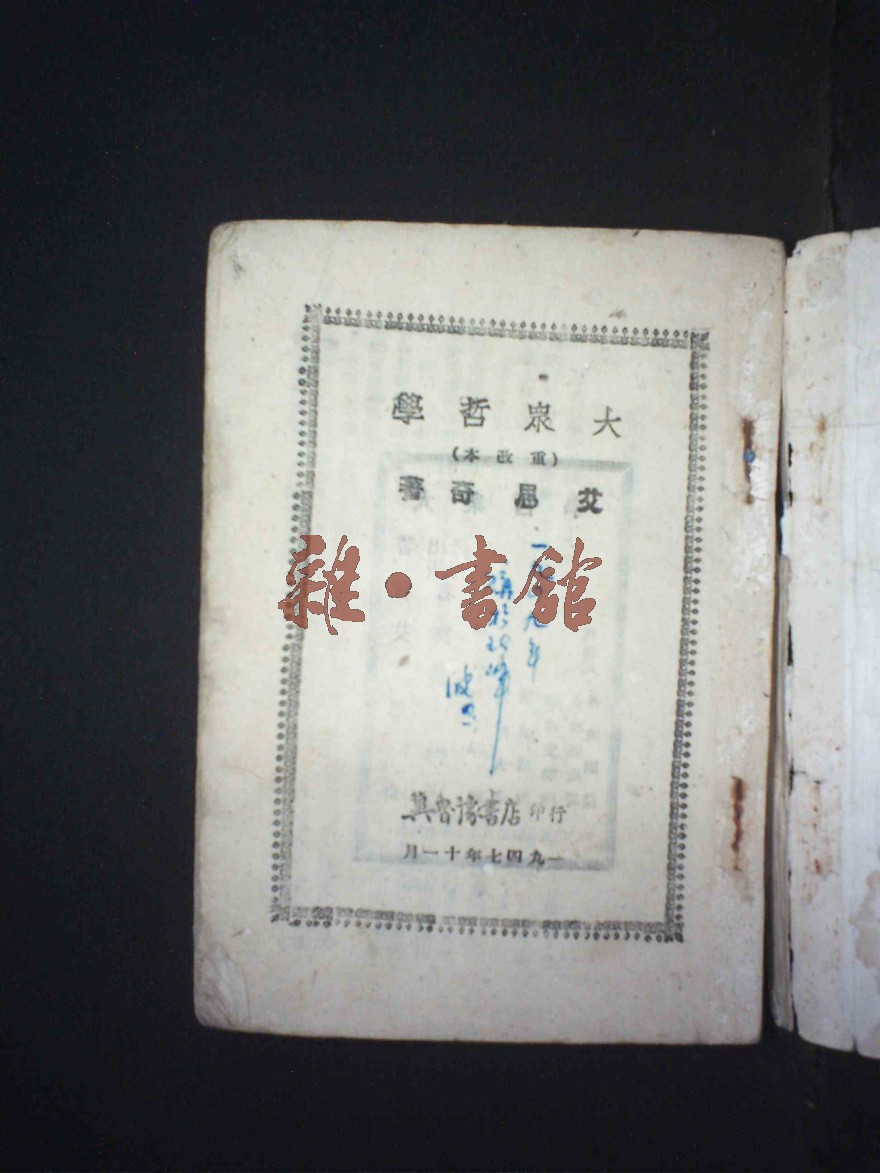 大衆哲學
（重改本）
艾思奇著
雜·書館
一九四九年
冀魯豫書店印行
一九四七年十一月